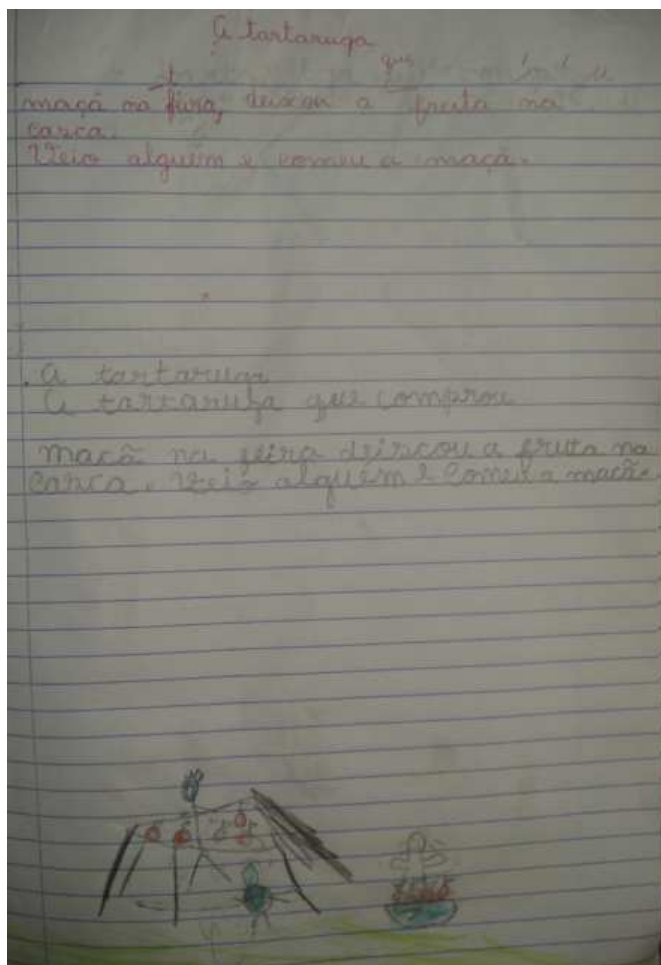 A tartaruga
que
maçã na feira, deixou a fruta na
casca.
Veio alguém e comeu a maçã.
A tartaruga
A tartaruga que comprou
maçã na feira deixcou a fruta na
casca. Veio alguém e comeu a maçã.